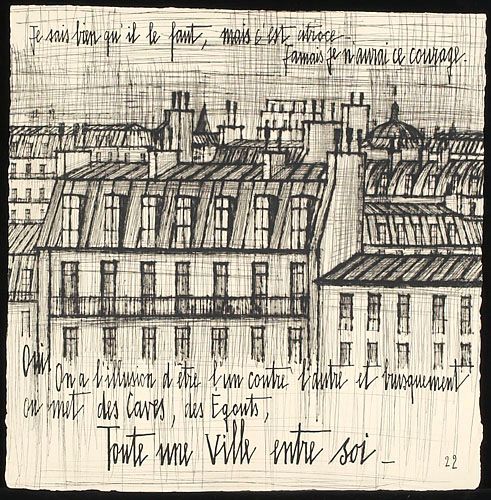 Je sais bien qu'il le faut, mais c'est atroce_
Jamais je n'aurai ce courage.
Oui!
On a l'illusion d'être l'un contre l'autre et brusquement
on met des Caves, des Egouts,
Toute une Ville entre soi_
22